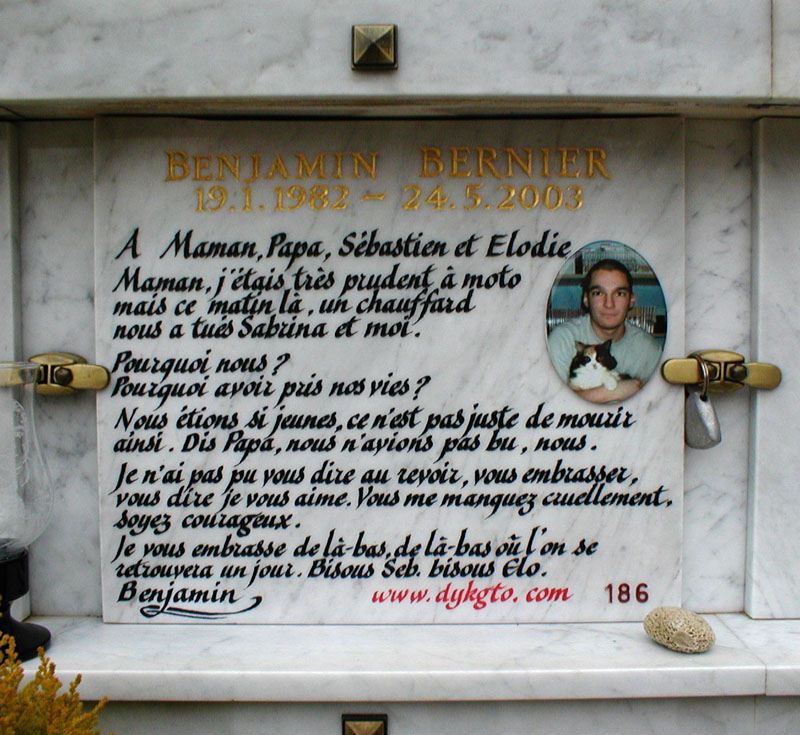 BENJAMIN BERNIER
19.1.1982 ~ 24.5.2003
A Maman, Papa, Sébastien et Elodie
Maman, j'étais très prudent à moto
mais ce matin là, un chauffard
nous a tués Sabrina et moi.
Pourquoi nous ?
Pourquoi avoir pris nos vies ?
Nous étions si jeunes, ce n'est pas juste de mourir
ainsi. Dis Papa, nous n'avions pas bu, nous.
Je n'ai pas pu vous dire au revoir, vous embrasser,
vous dire je vous aime. Vous me manquez cruellement,
soyez courageux.
Je vous embrasse de là-bas, de là-bas où l'on se
retrouvera un jour. Bisous Seb. bisous Elo.
Benjamin www.dykgto.com 186